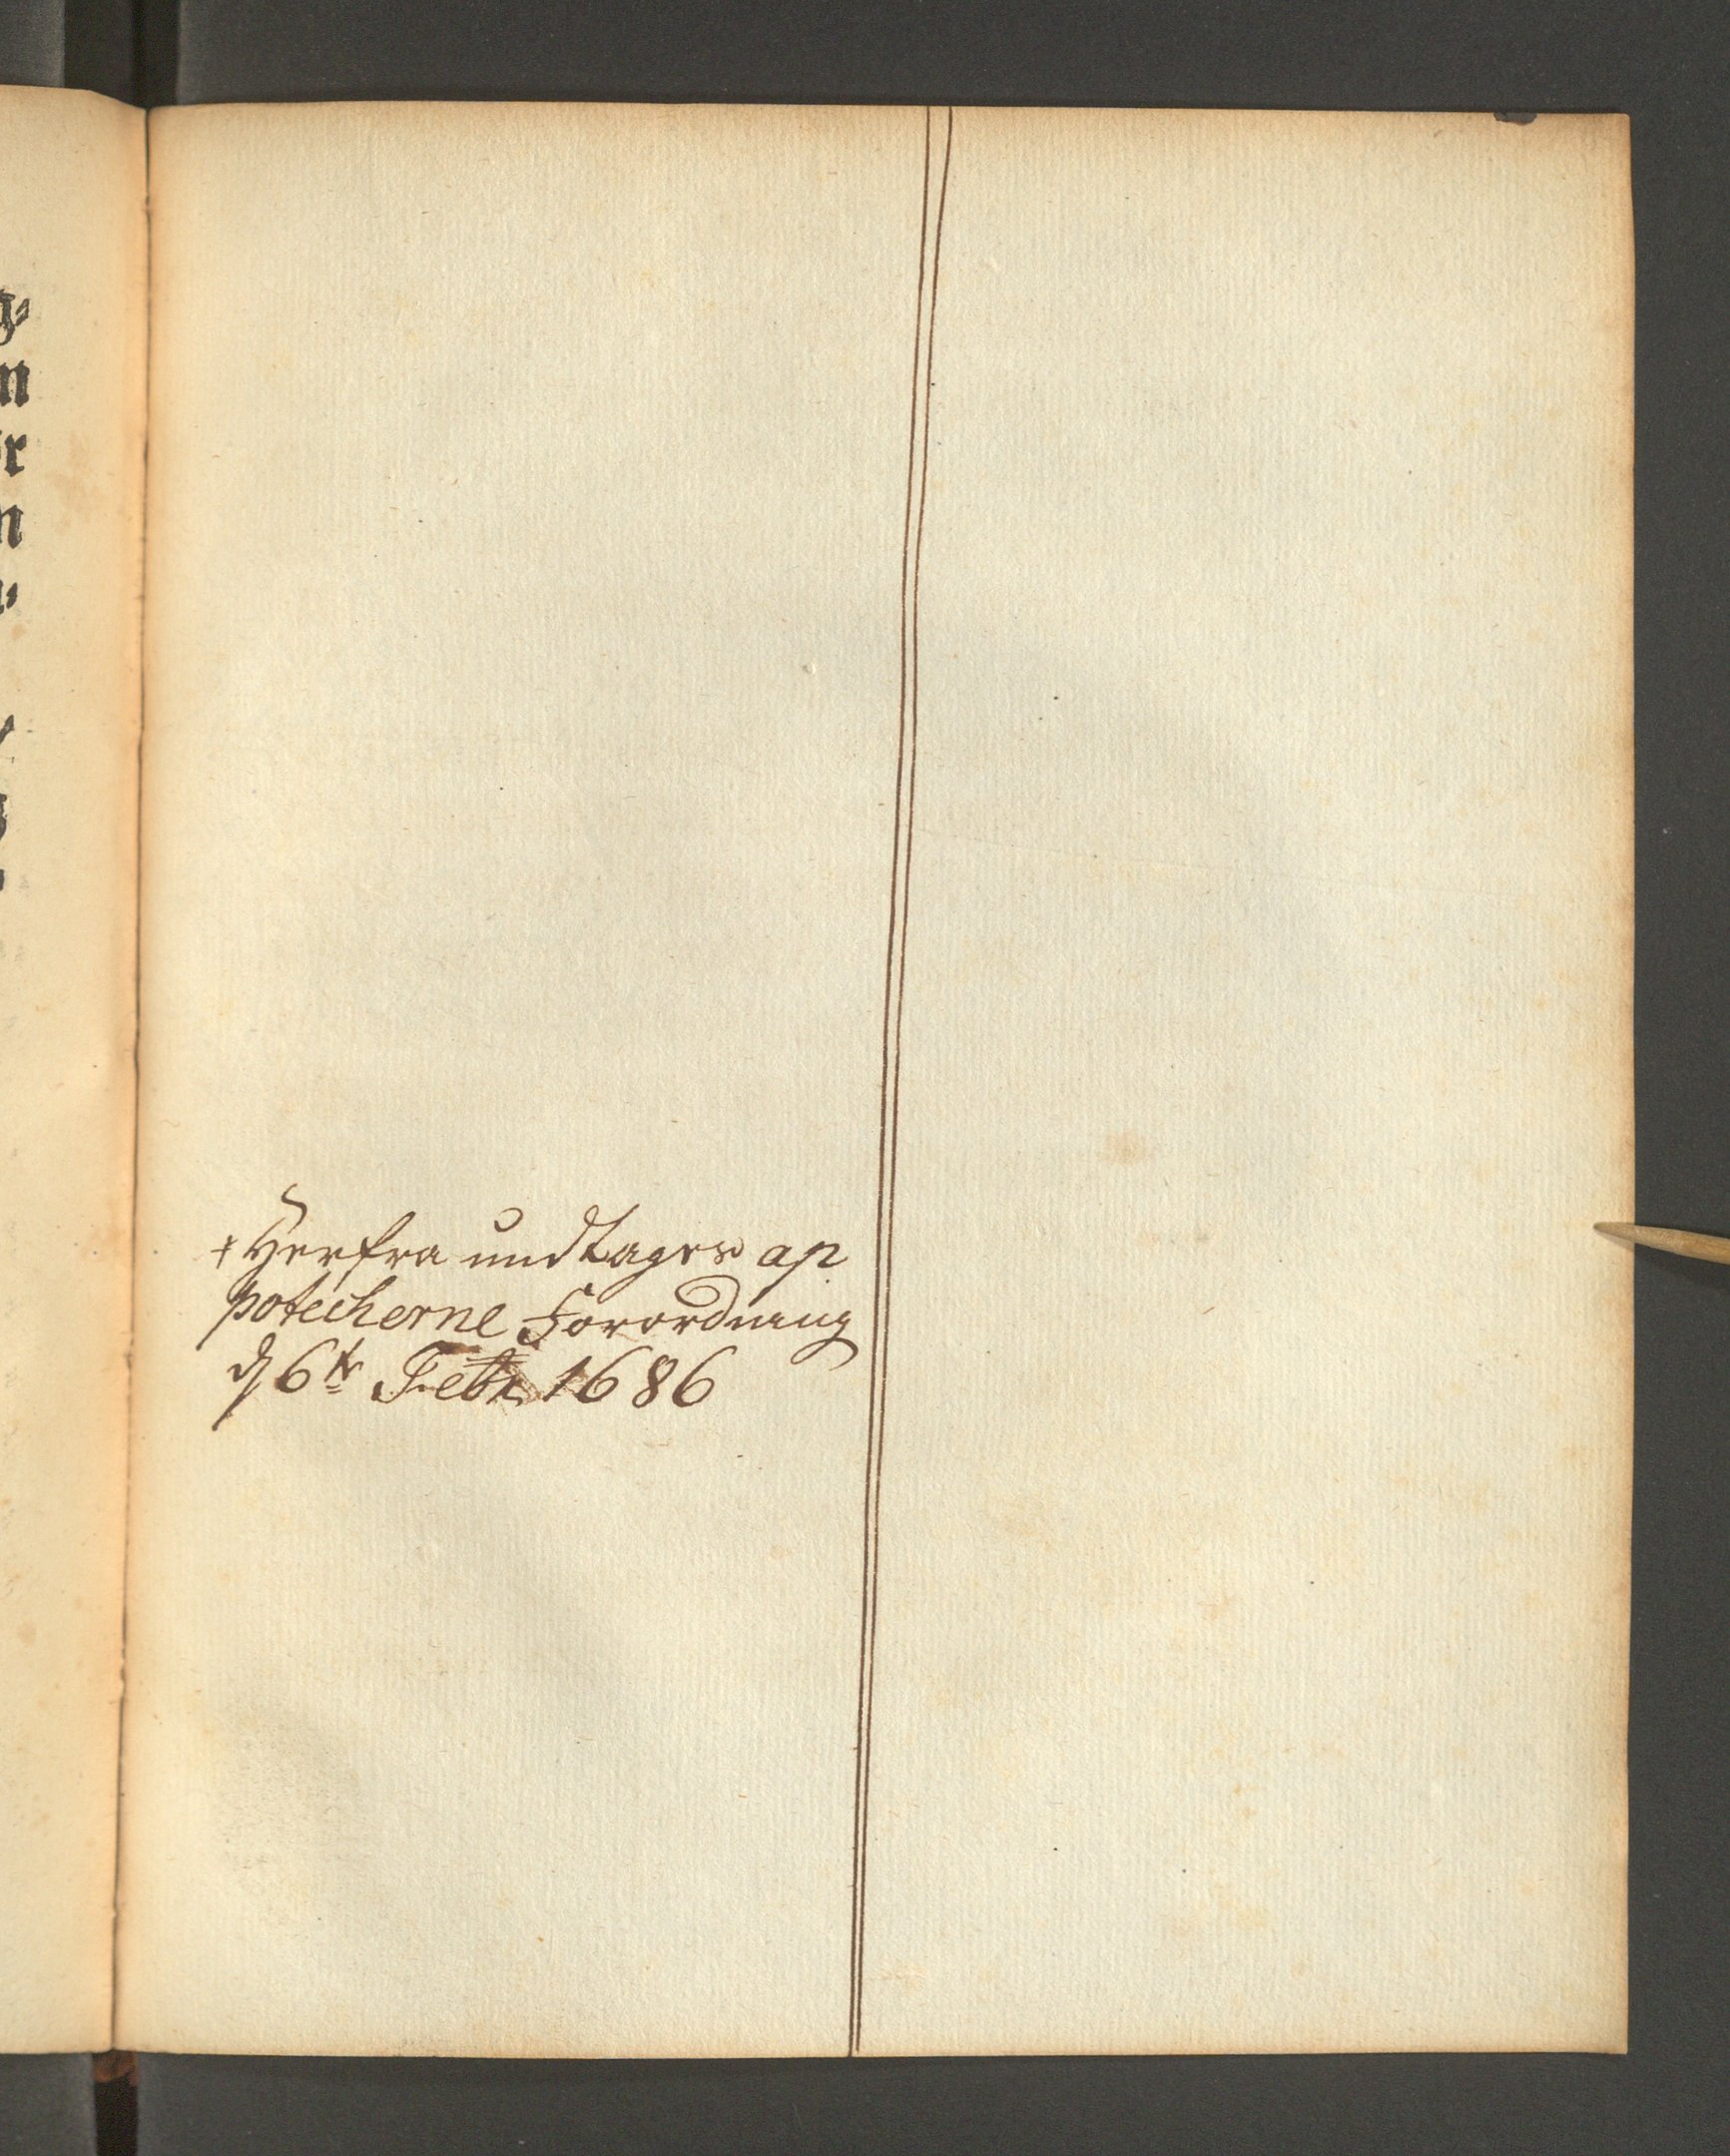 + Herfra undtages ap
potecherne Forordning
d 6te Febr. 1686